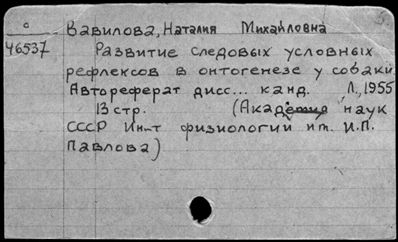 с
46537
Вавилова, Наталия Михайловна
Развитие следовых условных
рефлексов в онтогенезе у собаки
Автореферат дисс... канд. Л., 1955
13 стр. (Академия наук
СССР Ин-т физиологии им. И.П.
Павлова)